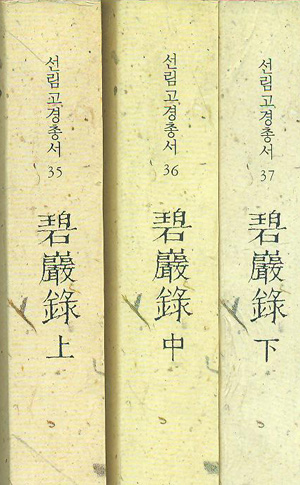 선림고경총서
35
碧巖錄
上
선림고경총서
36
碧巖錄
中
선림고경총서
37
碧巖錄
下